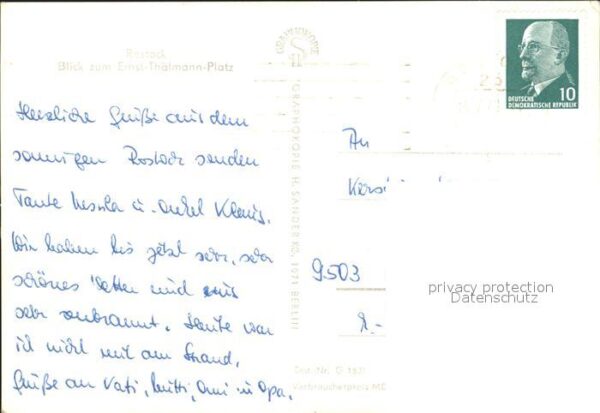 Rostock
Blick zum Ernst-Thälmann-Platz
Herzliche Grüße aus dem
sonnigen Rostock senden
Tante Ursula u. Onkel Klaus.
Wir haben bis jetzt sehr, sehr
schönes Wetter und sind
sehr verbrannt. Heute war
ich nicht mit am Strand.
Grüße an Vati, Mutti, Omi u. Opa.
GRAPHOKOPIE
GRAPHOKOPIE H. SANDER KG, 1071 BERLIN
Verbraucherpreis MD
10
DEUTSCHE
DEMOKRATISCHE REPUBLIK
An
9503
privacy protection
Datenschutz